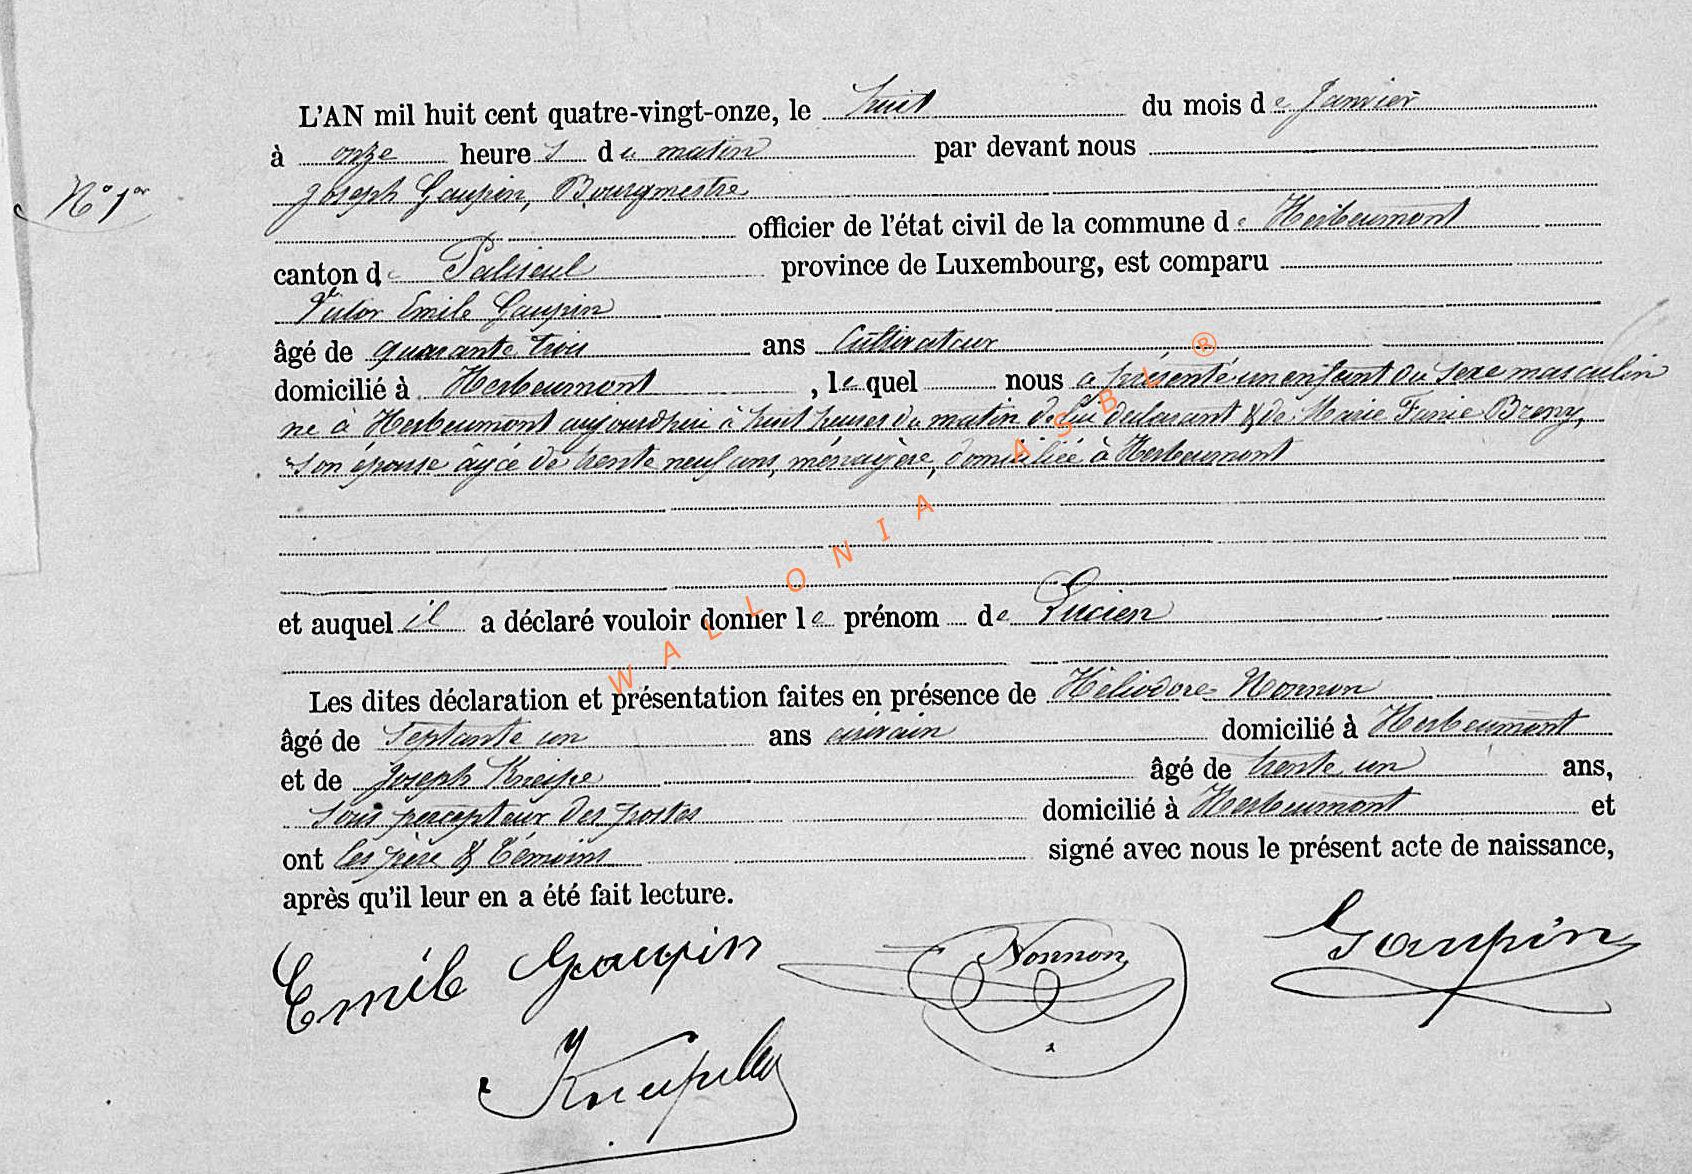 L'AN mil huit cent quatre-vingt-onze, le huit du mois de Janvier
à onze heures du matin par devant nous
N° 1er
Joseph Gaupin, Bourgmestre
officier de l'état civil de la commune de Herbeumont
canton de Paliseul province de Luxembourg, est comparu
Victor Emile Gaupin
âgé de quarante trois ans Cultivateur
domicilié à Herbeumont, lequel nous a présenté un enfant du sexe masculin
né à Herbeumont aujourd'hui à huit heures du matin de lui déclarant & de Marie Fanie Breny,
son épouse âgée de trente neuf ans, ménagère, domiciliée à Herbeumont
et auquel il a déclaré vouloir donner le prénom de Lucien
Les dites déclaration et présentation faites en présence de Héliodore Nonnon
âgé de septante un ans domicilié à Herbeumont
et de Joseph Kneipe âgé de trente un ans,
sous percepteur des postes domicilié à Herbeumont et
ont les père & témoins signé avec nous le présent acte de naissance,
après qu'il leur en a été fait lecture.
Emile Gaupin Nonnon Gaupin
WALLONIA ASBL ®